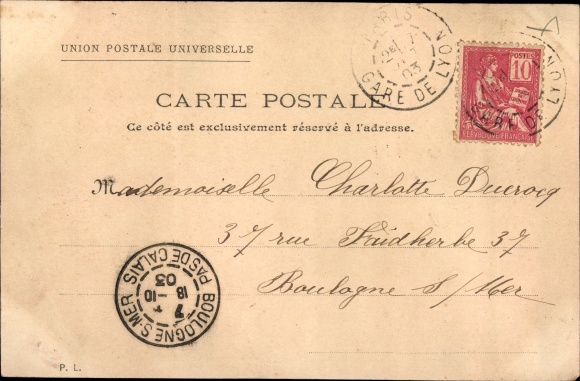 UNION POSTALE UNIVERSELLE
PARIS
GARE DE LYON
03
POSTES
10
REPUBLIQUE FRANÇAISE
GARE DE LYON
CARTE POSTALE
Ce côté est exclusivement réservé à l'adresse.
Mademoiselle Charlotte Ducrocq
37 rue Faidherbe 37
Boulogne S/Mer
BOULOGNE-S-MER
PAS DE CALAIS
7
18 -10
03
P. L.